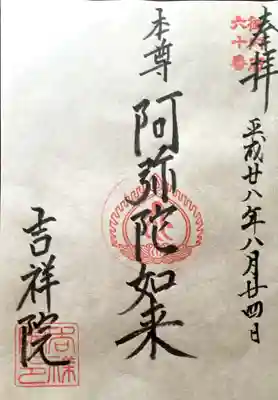 奉拝
平成廿八年八月廿四日
本尊
阿弥陀如来
吉祥院
六十番